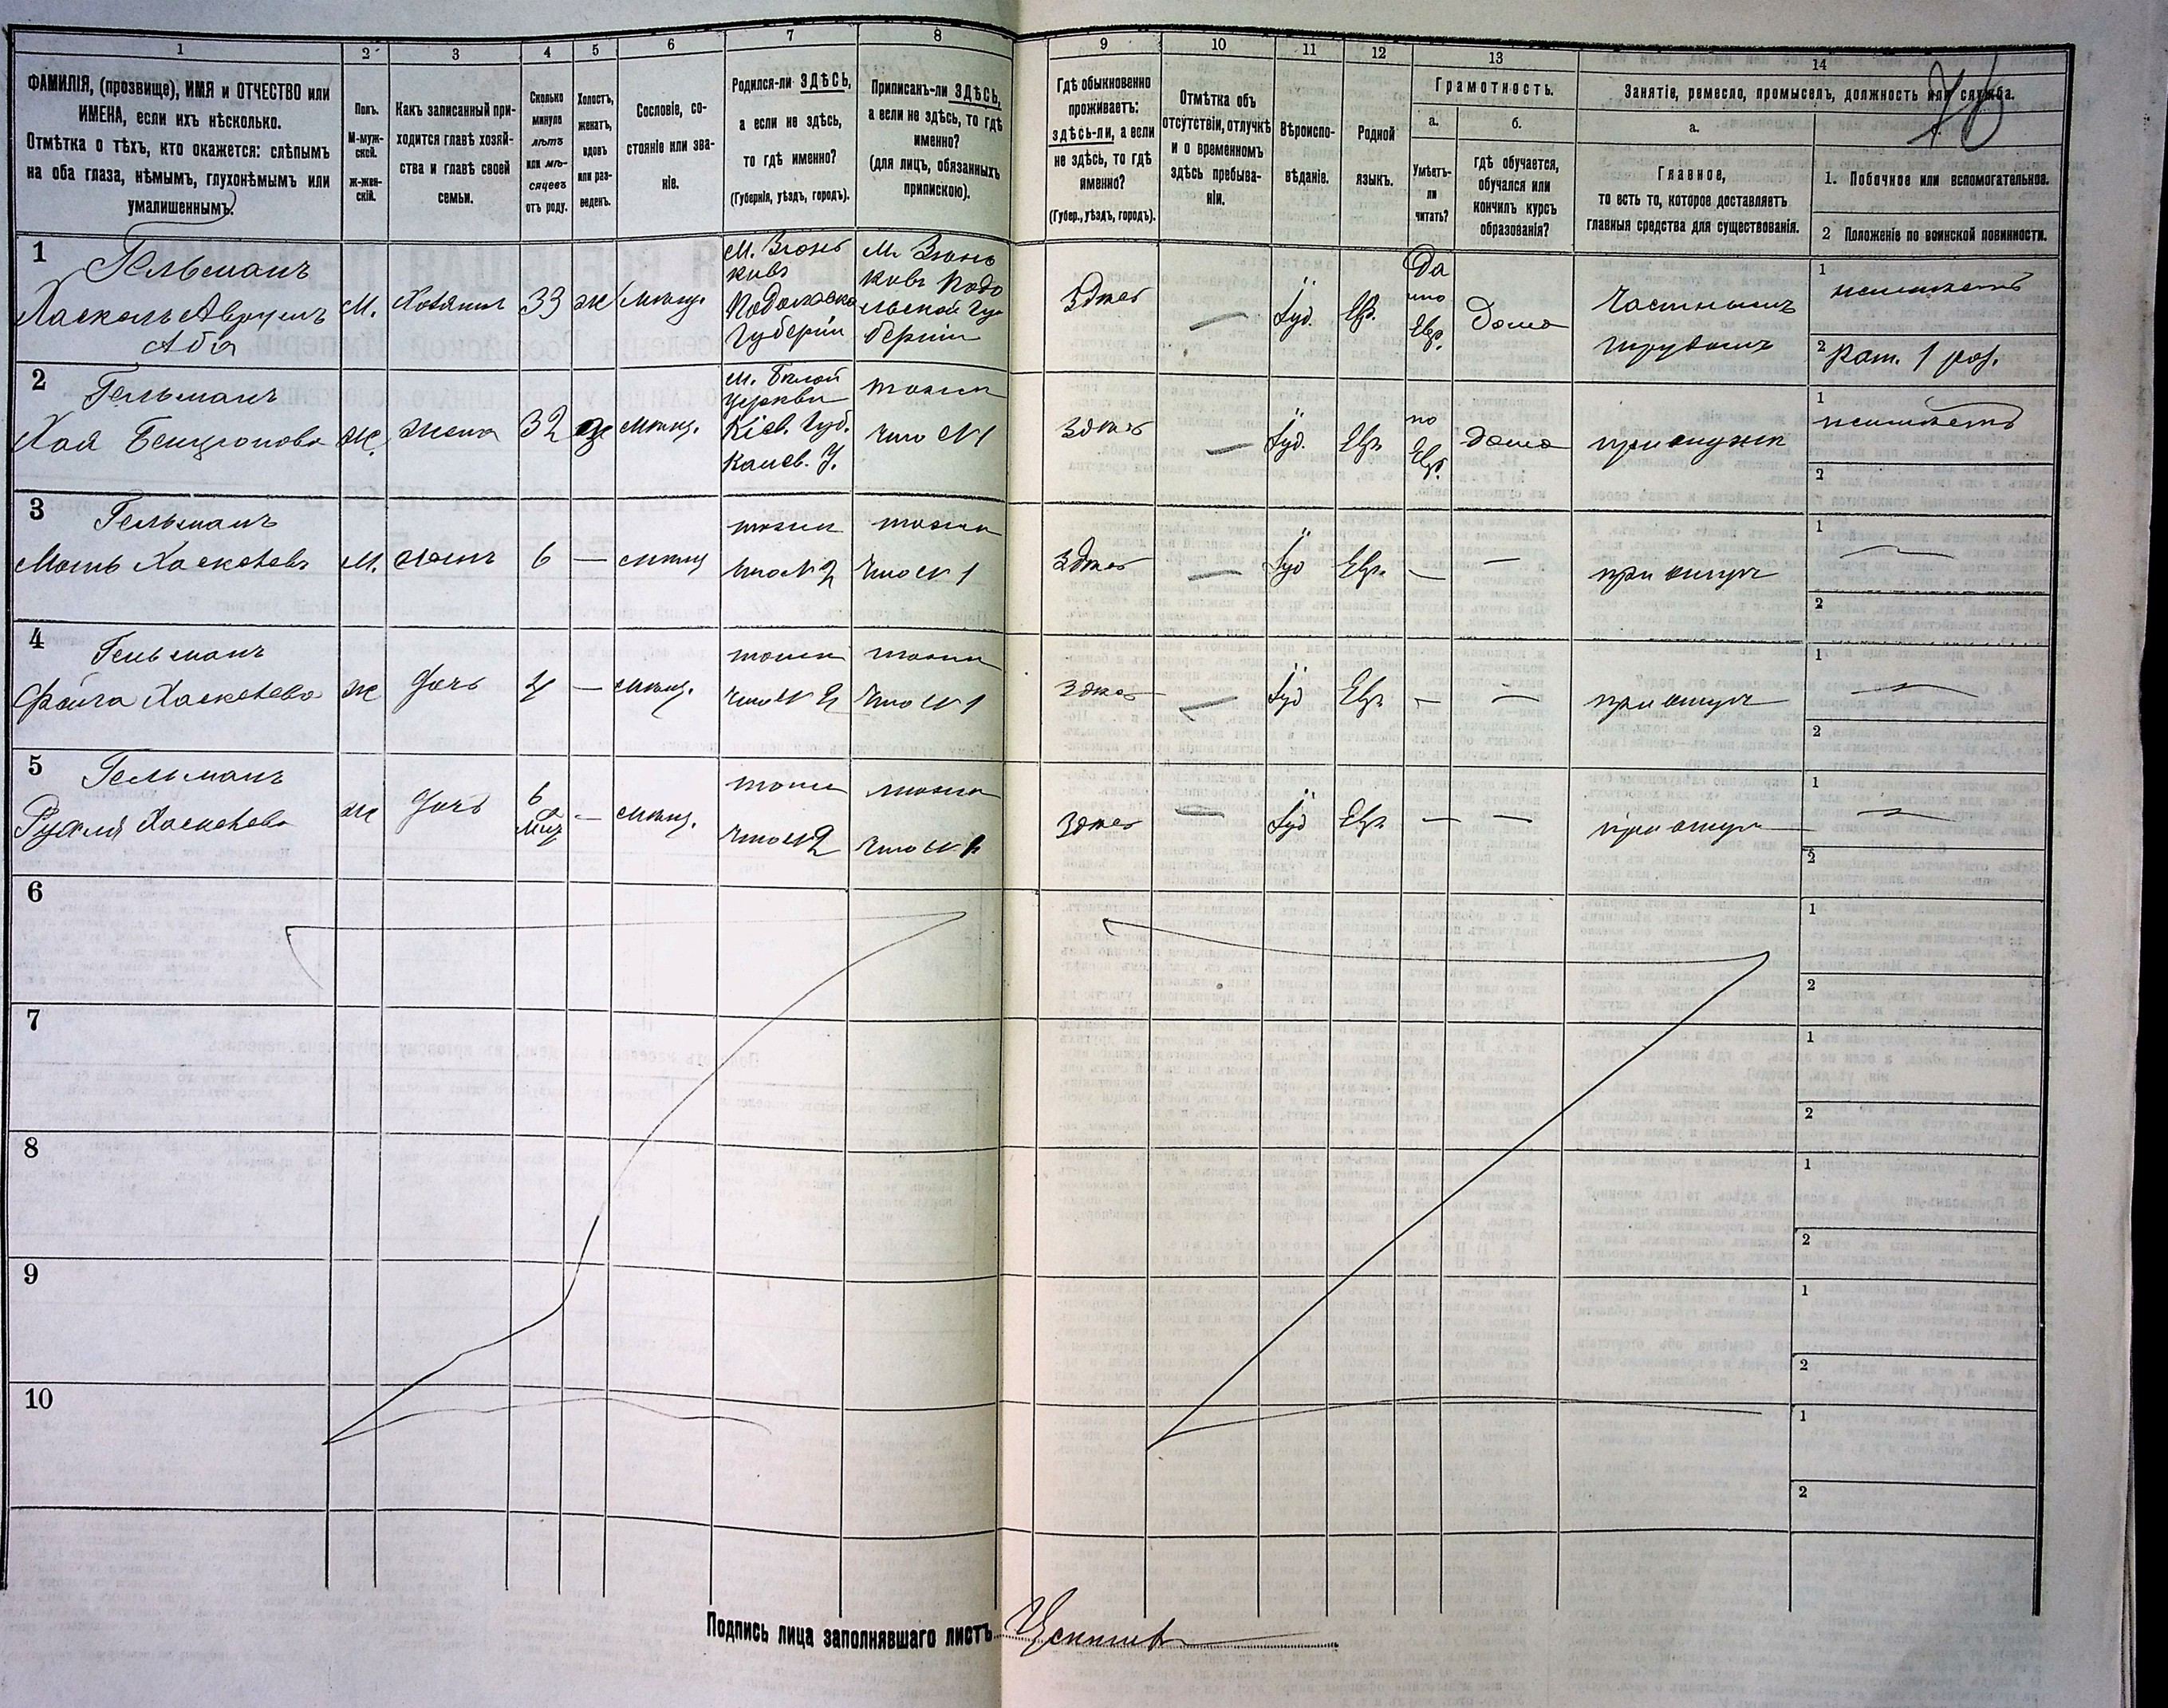 1
2
3
4
5
6
7
8
9
10
11
12
13
14
ФАМИЛІЯ, (прозвище), ИМЯ и ОТЧЕСТВО или
ИМЕНА, если ихъ нѣсколько.
Отмѣтка о тѣхъ, кто окажется: слѣпымъ
на оба глаза, нѣмымъ, глухонѣмымъ или
умалишеннымъ.
Полъ.
М-муж-
ской.
ж-жен-
скій.
Какъ записанный при-
ходится главѣ хозяй-
ства и главѣ своей
семьи.
Сколько
минуло
лѣтъ
или мѣ-
сяцевъ
отъ роду.
Холостъ,
женатъ,
вдовъ
или раз-
веденъ.
Сословіе, со-
стояніе или зва-
ніе.
Родился-ли ЗДѢСЬ,
а если не здѣсь,
то гдѣ именно?
(Губернія, уѣздъ, городъ).
Приписанъ-ли ЗДѢСЬ,
а если не здѣсь, то гдѣ
именно?
(для лицъ, обязанныхъ
припискою).
Гдѣ обыкновенно
проживаетъ:
здѣсь-ли, а если
не здѣсь, то гдѣ
именно?
(Губер., уѣздъ, городъ).
Отмѣтка объ
отсутствіи, отлучкѣ
и о временномъ
здѣсь пребыва-
ніи.
Вѣроиспо-
вѣданіе.
Родной
языкъ.
Грамотность.
а.
б.
Умѣетъ-
ли
читать?
гдѣ обучается,
обучался или
кончилъ курсъ
образованія?
Занятіе, ремесло, промыселъ, должность или служба.
а.
Главное,
то есть то, которое доставляетъ
главныя средства для существованія.
1. Побочное или вспомогательное.
2 Положеніе по воинской повинности.
1
Гельманъ
Хаскель Аврумъ
Аба
М.
Хозяинъ
33
ж
мѣщ.
М. Згонь
ковъ
Подольской
Губерніи
М. Згонь
ковъ Подо
льской Гу
берніи
Здѣсь
—
Іуд.
Евр.
Да
по
Евр.
Дома
Частнымъ
трудомъ
1
неимѣетъ
2 Рат. 1 раз.
2
Гельманъ
Хая Бенціонова
ж.
жена
32
з
мѣщ.
М. Бѣлой
церкви
Кіев. Губ.
Канев. У.
тоже
что N 1
Здѣсь
—
Іуд.
Евр.
по
Евр.
дома
при мужѣ
1
неимѣетъ
2
3
Гельманъ
Моть Хаскелевъ
М.
сынъ
6
—
мѣщ
тоже
что N 2
тоже
что N 1
Здѣсь
—
Іуд
Евр.
—
—
при отцѣ
1
—
2
4
Гельманъ
Фейга Хаскелева
ж
дочь
4
—
мѣщ.
тоже
что N 2
тоже
что N 1
Здѣсь
—
Іуд
Евр.
—
—
при отцѣ
1
—
2
5
Гельманъ
Рухля Хаскелева
ж
дочь
6
—
мѣщ.
тоже
что N 2
тоже
что N 1
Здѣсь
—
Іуд
Евр
—
—
при отцѣ
1
—
2
6
1
2
7
1
2
8
1
2
9
1
2
10
1
2
Подпись лица заполнявшаго листъ